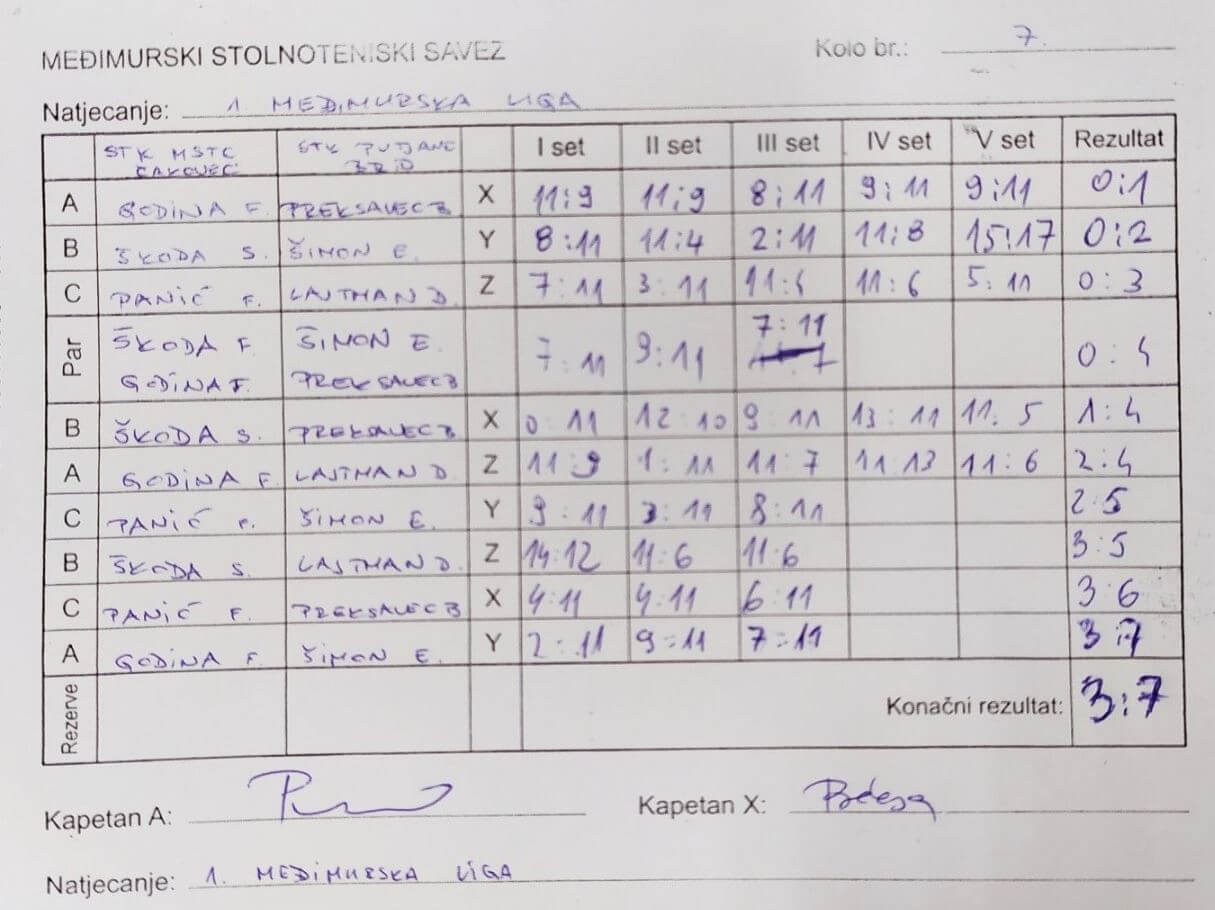 MEĐIMURSKI STOLNOTENISKI SAVEZ Kolo br.: 7.
Natjecanje: 1. MEĐIMURSKA LIGA
STK MSTC ČAKOVEC STK PUTJANE BRID I set II set III set IV set V set Rezultat
A GODINA F. PREKSAVEC B X 11:9 11:9 8:11 9:11 9:11 0:1
B ŠKODA S. ŠIMON E. Y 8:11 11:4 2:11 11:8 15:17 0:2
C PANIĆ F. LAJTMAN D. Z 7:11 3:11 11:6 5:11 0:3
Par ŠKODA F. ŠIMON E. 7:11
GODINA F. PREKSAVEC B 7:11 9:11 0:4
B ŠKODA S. PREKSAVEC B X 0:11 12:10 9:11 13:11 11:5 1:4
A GODINA F. LAJTMAN D. Z 11:9 1:11 11:7 11:13 11:6 2:4
C PANIĆ F. ŠIMON E. Y 9:11 3:11 8:11 2:5
B ŠKODA S. LAJTMAN D. Z 14:12 11:6 11:6 3:5
C PANIĆ F. PREKSAVEC B X 4:11 4:11 6:11 3:6
A GODINA F. ŠIMON E. Y 2:11 9:11 7:11 3:7
Rezerve Konačni rezultat: 3:7
Kapetan A: Kapetan X:
Natjecanje: 1. MEĐIMURSKA LIGA